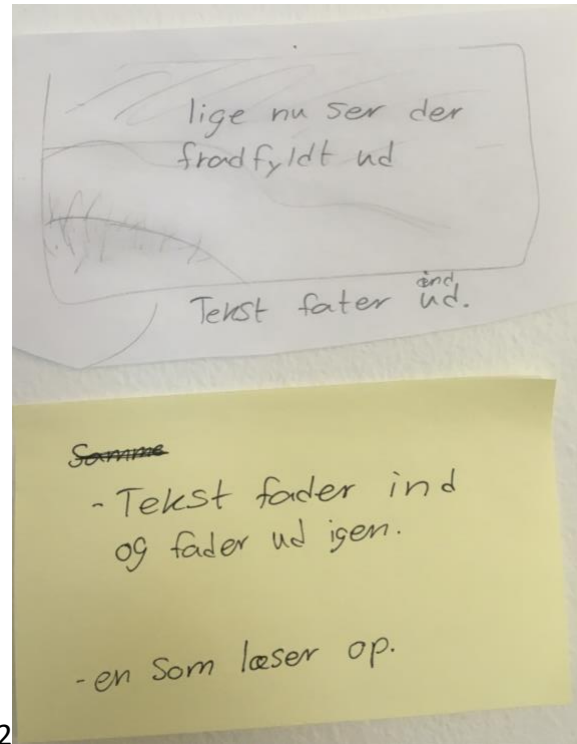 lige nu ser der
fradfyldt ud
ind
Tekst fater ud.
Samme
- Tekst fader ind
og fader ud igen.
- en som læser op.
2